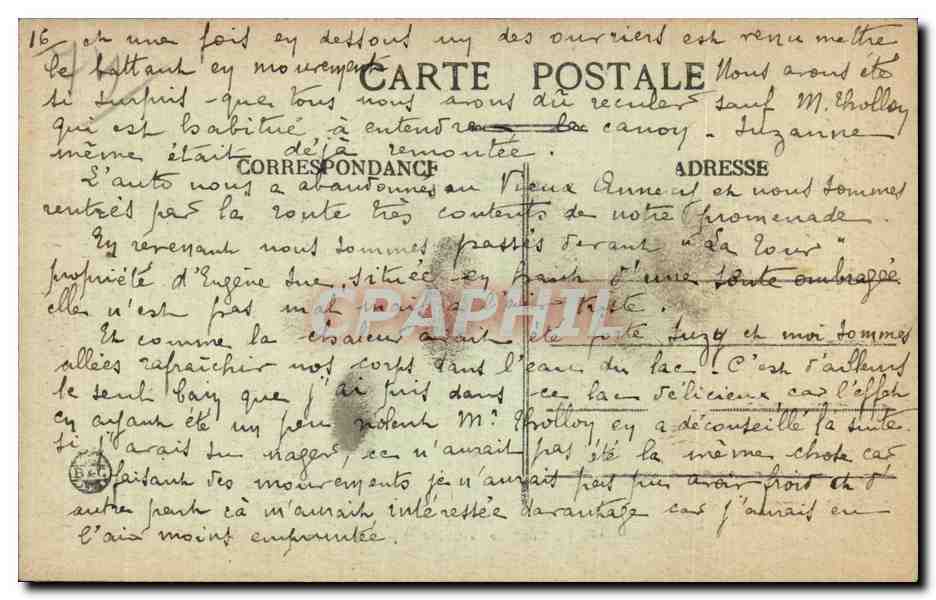 16 et une fois en dessous un des ouvriers est venu mettre
le battant en mouvement
CARTE POSTALE
Nous avons été
si surpris que tous nous avons dû reculer sauf M. Tholloy
qui est habitué à entendre le canon. Suzanne
même était déjà remontée.
CORRESPONDANCE
ADRESSE
L'auto nous a abandonnés au Vieux Annecy et nous sommes
rentrés par la route très contents de notre promenade.
En revenant nous sommes passés devant "La Tour"
propriété d'Eugène Sue, située en d'une ombragée
elle n'est pas mal mais a l'air triste.
CPAPHIL
Et comme la chaleur avait été forte Suzy et moi sommes
allées rafraîchir nos corps dans l'eau du lac. C'est d'ailleurs
le seul bain que j'ai pris dans ce lac délicieux car l'effet
en ayant été un peu violent Mr. Tholloy en a déconseillé la suite.
Si j'avais su nager, ce n'aurait pas été la même chose car
B & G
faisant des mouvements je n'aurais pas pu avoir froid et d'
autre part çà m'aurait intéressée davantage car j'aurais eu
l'air moins empruntée.